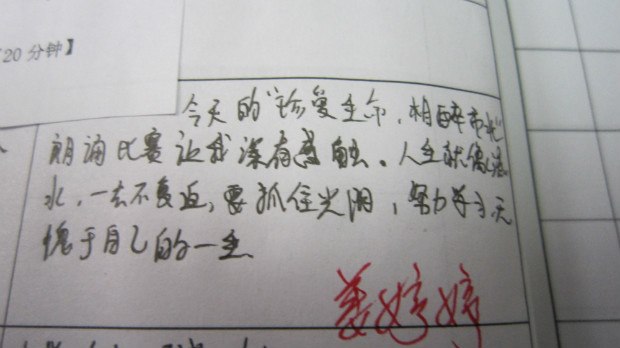 20分钟】
今天的"珍爱生命,相
朗诵比赛让我深有感触。人生就像
水,一去不复返,要抓住光阴,努力学习,无
愧于自己的一生
姜婷婷